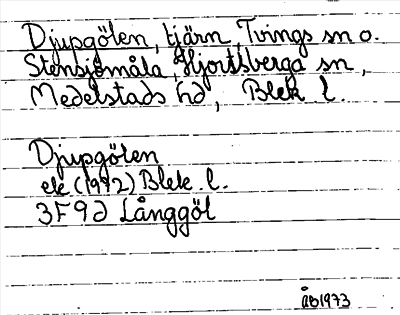 Djupgölen, tjärn Tvings sn o.
Stensjömåla, Hjortsberga sn,
Medelstads hd, Blek l.
Djupgölen
ek (1972) Blek. l.
3F9d Långgöl
ÅB1973